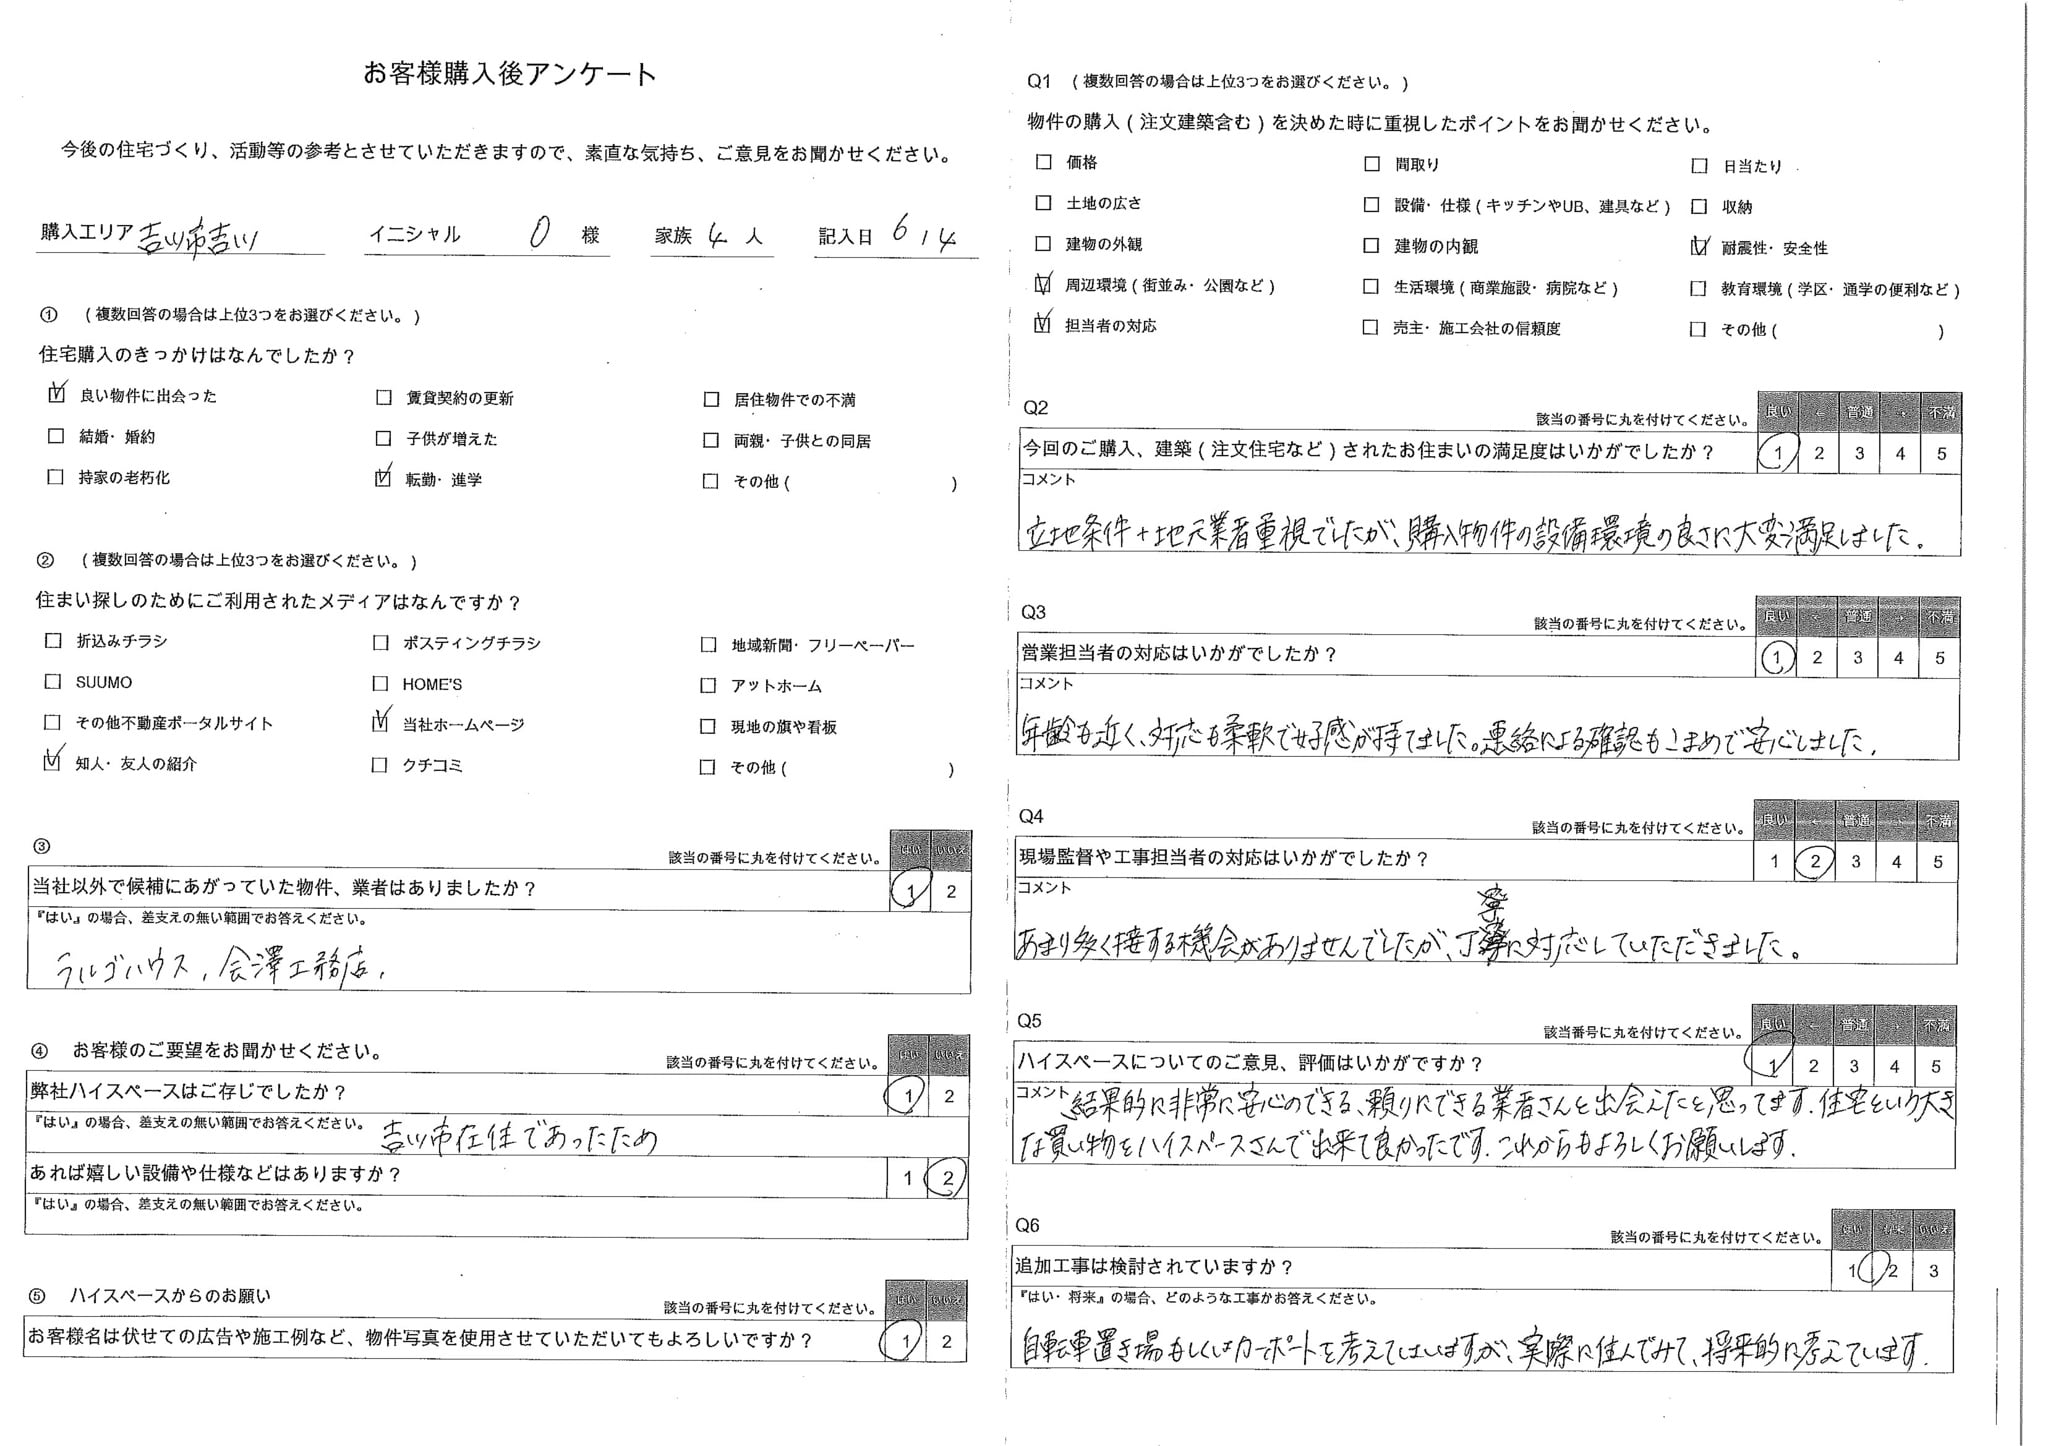 お客様購入後アンケート
今後の住宅づくり、活動等の参考とさせていただきますので、素直な気持ち、ご意見をお聞かせください。
購入エリア 吉川市吉川 イニシャル O 様 家族 4 人 記入日 6 14
① (複数回答の場合は上位3つをお選びください。)
住宅購入のきっかけはなんでしたか？
良い物件に出会った 賃貸契約の更新 居住物件での不満
結婚・婚約 子供が増えた 両親・子供との同居
持家の老朽化 転勤・進学 その他 ( )
② (複数回答の場合は上位3つをお選びください。)
住まい探しのためにご利用されたメディアはなんですか？
折込みチラシ ポスティングチラシ 地域新聞・フリーペーパー
SUUMO HOME'S アットホーム
その他不動産ポータルサイト 当社ホームページ 現地の旗や看板
知人・友人の紹介 クチコミ その他 ( )
③ 該当の番号に丸を付けてください。 はい いいえ
当社以外で候補にあがっていた物件、業者はありましたか？ 1 2
『はい』の場合、差支えの無い範囲でお答えください。
ラルゴハウス, 会澤工務店,
④ お客様のご要望をお聞かせください。 該当の番号に丸を付けてください。 はい いいえ
弊社ハイスペースはご存じでしたか？ 1 2
『はい』の場合、差支えの無い範囲でお答えください。 吉川市在住であったため
あれば嬉しい設備や仕様などはありますか？ 1 2
『はい』の場合、差支えの無い範囲でお答えください。
⑤ ハイスペースからのお願い 該当の番号に丸を付けてください。 はい いいえ
お客様名は伏せての広告や施工例など、物件写真を使用させていただいてもよろしいですか？ 1 2
Q1 (複数回答の場合は上位3つをお選びください。)
物件の購入(注文建築含む)を決めた時に重視したポイントをお聞かせください。
価格 間取り 日当たり
土地の広さ 設備・仕様(キッチンやUB、建具など) 収納
建物の外観 建物の内観 耐震性・安全性
周辺環境(街並み・公園など) 生活環境(商業施設・病院など) 教育環境(学区・通学の便利など)
担当者の対応 売主・施工会社の信頼度 その他 ( )
Q2 該当の番号に丸を付けてください。 良い ← 普通 → 不満
今回のご購入、建築(注文住宅など)されたお住まいの満足度はいかがでしたか？ 1 2 3 4 5
コメント
立地条件+地元業者重視でしたが、購入物件の設備環境の良さに大変満足しました。
Q3 該当の番号に丸を付けてください。 良い ← 普通 → 不満
営業担当者の対応はいかがでしたか？ 1 2 3 4 5
コメント
年齢も近く、対応も柔軟で好感が持てました。連絡による確認もこまめで安心しました.
Q4 該当の番号に丸を付けてください。 良い ← 普通 → 不満
現場監督や工事担当者の対応はいかがでしたか？ 1 2 3 4 5
コメント
あまり多く接する機会がありませんでしたが、丁寧に対応していただきました。
Q5 該当番号に丸を付けてください。 良い ← 普通 → 不満
ハイスペースについてのご意見、評価はいかがですか？ 1 2 3 4 5
コメント 結果的に非常に安心のできる、頼りにできる業者さんと出会えたと思ってます. 住宅という大き
な買い物をハイスペースさんで出来て良かったです. これからもよろしくお願いします.
Q6 該当の番号に丸を付けてください。 はい 将来 いいえ
追加工事は検討されていますか？ 1 2 3
『はい・将来』の場合、どのような工事かお答えください。
自転車置き場もしくはカーポートを考えてはいますが、実際に住んでみて、将来的に考えています.